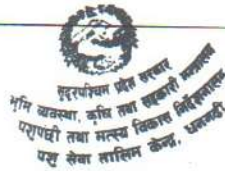 सुदूरपश्चिम प्रदेश सरकार
भूमि व्यवस्था, कृषि तथा सहकारी मन्त्रालय
पशुपंछी तथा मत्स्य विकास निर्देशनालय
पशु सेवा तालिम केन्द्र, धनगढी